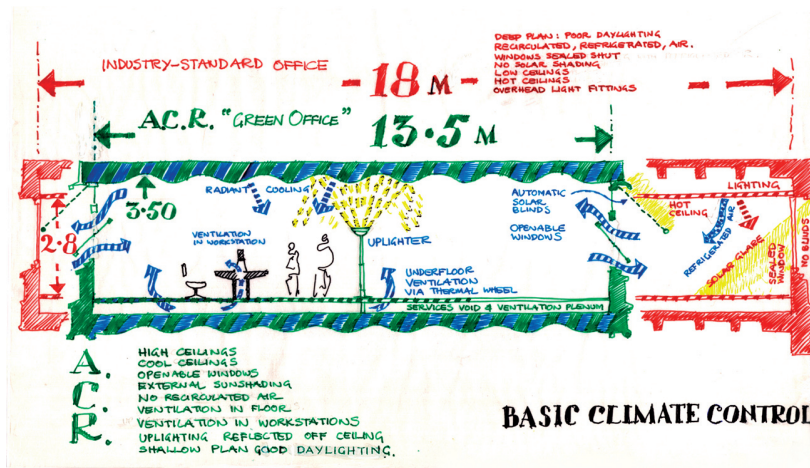 INDUSTRY-STANDARD OFFICE
18 M
DEEP PLAN: POOR DAYLIGHTING
RECIRCULATED, REFRIGERATED, AIR.
WINDOWS SEALED SHUT
NO SOLAR SHADING
LOW CEILINGS
HOT CEILINGS
OVERHEAD LIGHT FITTINGS
A.C.R. "GREEN OFFICE"
13·5 M
RADIANT COOLING
3·50
2·8
VENTILATION
IN WORKSTATION
UPLIGHTER
AUTOMATIC
SOLAR
BLINDS
OPENABLE
WINDOWS
UNDERFLOOR
VENTILATION
VIA THERMAL WHEEL
SERVICES VOID & VENTILATION PLENUM
LIGHTING
HOT
CEILING
REFRIGERATED AIR
SOLAR GLARE
SEALED
WINDOW
NO BLINDS
A.
C.
R.
HIGH CEILINGS
COOL CEILINGS
OPENABLE WINDOWS
EXTERNAL SUNSHADING
NO RECIRCULATED AIR
VENTILATION IN FLOOR
VENTILATION IN WORKSTATIONS
UPLIGHTING REFLECTED OFF CEILING
SHALLOW PLAN GOOD DAYLIGHTING.
BASIC CLIMATE CONTROL